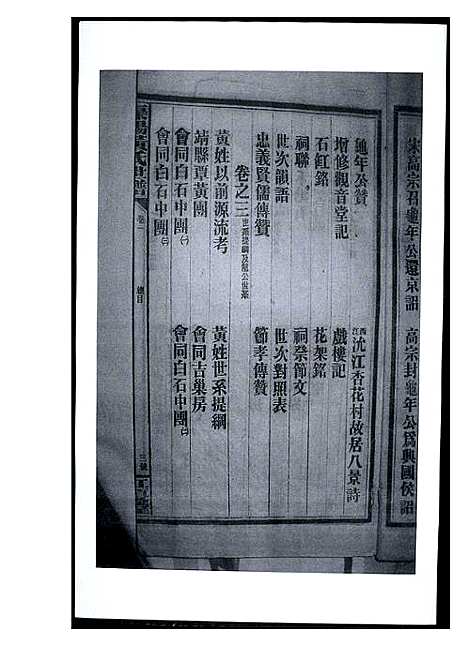 宋高宗召龜年公還京詔　高宗封龜年公為興國侯詔
龜年公贊　江西沈江杏花村故居八景詩
增修觀音堂記　戲樓記
石虹銘　花架銘
祠聯　祠祭節文
世次韻語　世次對照表
忠義賢儒傳贊　節孝傳贊
卷之三　世系提綱及龍公世系
黃姓以前源流考　黃姓世系提綱
靖縣覃黃團　會同吉巢房
會同白石中團㈠　會同白石中團㈡
會同白石中團㈢
卷　總目